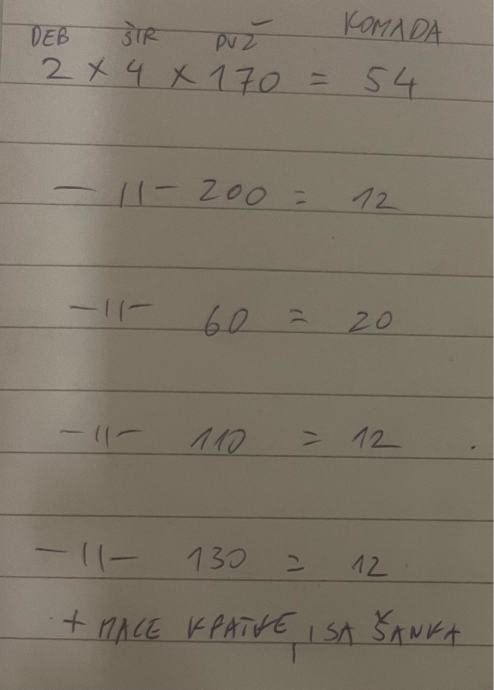 DEB ŠIR DUŽ KOMADA
2 x 4 x 170 = 54
— 11 — 200 = 12
— 11 — 60 = 20
— 11 — 110 = 12
— 11 — 130 = 12
+ MALE KRATKE, I SA ŠANKA